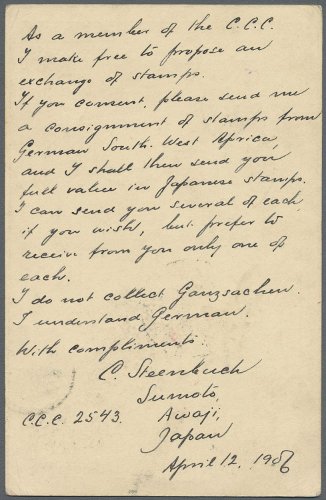 As a member of the C.C.C.
I make free to propose an
exchange of stamps.
If you consent, please send me
a consignment of stamps from
German South. West Africa,
and I shall then send you
full value in Japanese stamps.
I can send you several of each,
if you wish, but prefer to
receive from you only one of
each.
I do not collect Ganzsachen.
I understand German.
With compliments.
C. Steenbuch
Sumoto,
C.C.C. 2543. Awaji,
Japan
April 12, 1906